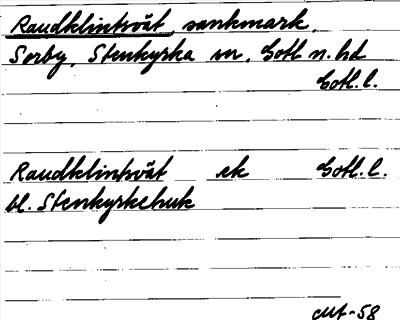 Raudklintvät, sankmark,
Sorby, Stenkyrka sn, Gotl n. hd
Gotl. l.
Raudklintvät ek Gotl. l.
bl. Stenkyrkehuk
-58